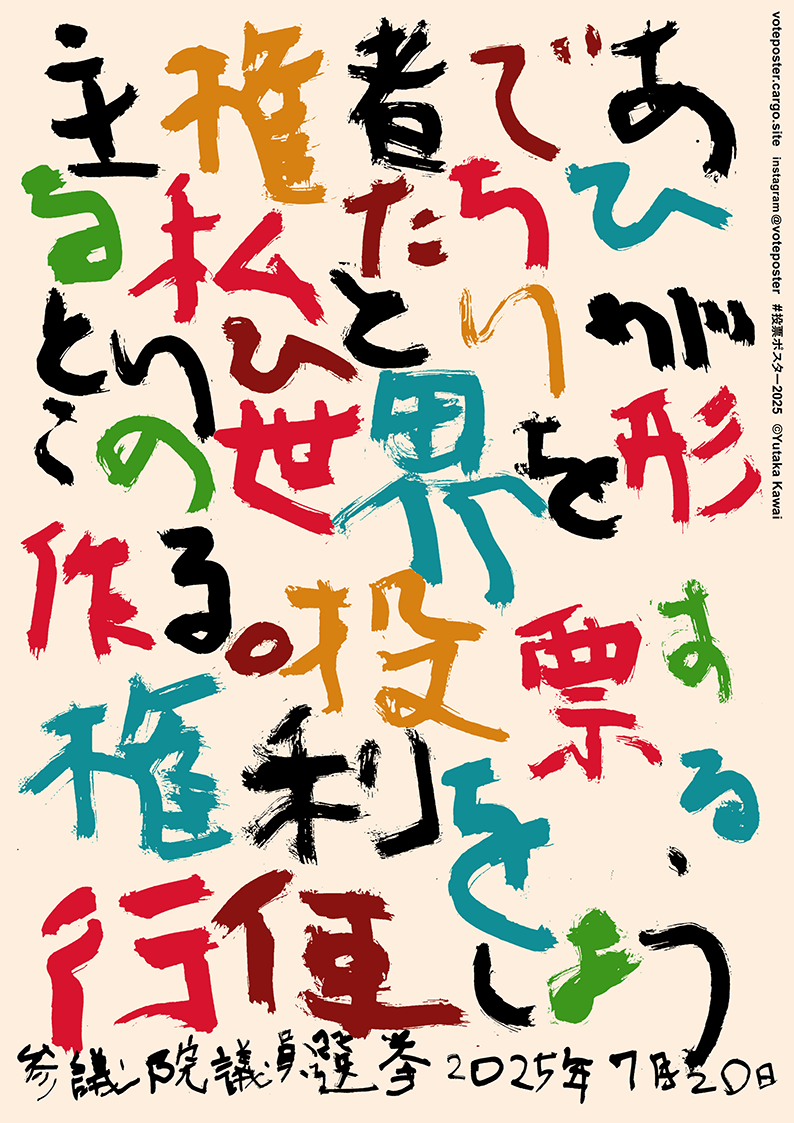 主権者であ
る私たちひ
とりひとりが
この世界を形
作る。投票す
る権利を
行使しよう
参議院議員選挙 2025年7月20日
voteposter.cargo.site instagram @voteposter #投票ポスター2025 ©Yutaka Kawai